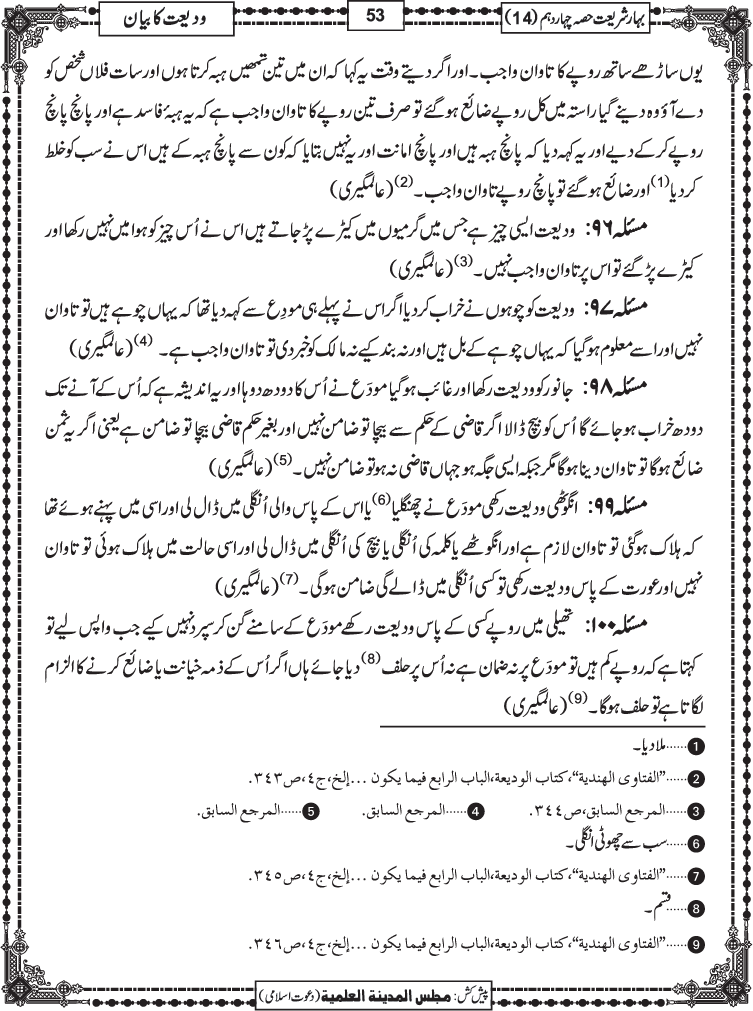 بہارِ شریعت حصہ چہاردہم (14)
53
ودیعت کا بیان
یوں ساڑھے سات روپے کا تاوان واجب۔ اور اگر دیتے وقت یہ کہا کہ ان میں تین تمھیں ہبہ کرتا ہوں اور سات فلاں شخص کو
دے آؤ وہ دینے گیا راستہ میں کل روپے ضائع ہوگئے تو صرف تین روپے کا تاوان واجب ہے کہ یہ ہبۂ فاسد ہے اور پانچ پانچ
روپے کرکے دیے اور یہ کہہ دیا کہ پانچ ہبہ ہیں اور پانچ امانت اور یہ نہیں بتایا کہ کون سے پانچ ہبہ کے ہیں اس نے سب کو خلط
کر دیا(1) اور ضائع ہوگئے تو پانچ روپے تاوان واجب۔(2) (عالمگیری)
مسئلہ ۹۶: ودیعت ایسی چیز ہے جس میں گرمیوں میں کیڑے پڑ جاتے ہیں اس نے اُس چیز کو ہوا میں نہیں رکھا اور
کیڑے پڑ گئے تو اس پر تاوان واجب نہیں۔(3) (عالمگیری)
مسئلہ ۹۷: ودیعت کو چوہوں نے خراب کر دیا اگر اس نے پہلے ہی مودِع سے کہہ دیا تھا کہ یہاں چوہے ہیں تو تاوان
نہیں اور اسے معلوم ہوگیا کہ یہاں چوہے کے بل ہیں اور نہ بند کیے نہ مالک کو خبر دی تو تاوان واجب ہے۔(4) (عالمگیری)
مسئلہ ۹۸: جانور کو ودیعت رکھا اور غائب ہوگیا مودَع نے اُس کا دودھ دوہا اور یہ اندیشہ ہے کہ اُس کے آنے تک
دودھ خراب ہوجائے گا اُس کو بیچ ڈالا اگر قاضی کے حکم سے بیچا تو ضامن نہیں اور بغیر حکم قاضی بیچا تو ضامن ہے یعنی اگر یہ ثمن
ضائع ہوگا تو تاوان دینا ہوگا مگر جبکہ ایسی جگہ ہو جہاں قاضی نہ ہو تو ضامن نہیں۔(5) (عالمگیری)
مسئلہ ۹۹: انگوٹھی ودیعت رکھی مودَع نے چھنگلیا(6) یا اس کے پاس والی اُنگلی میں ڈال لی اور اسی میں پہنے ہوئے تھا
کہ ہلاک ہوگئی تو تاوان لازم ہے اور انگوٹھے یا کلمہ کی اُنگلی یا بیچ کی اُنگلی میں ڈال لی اور اسی حالت میں ہلاک ہوئی تو تاوان
نہیں اور عورت کے پاس ودیعت رکھی تو کسی اُنگلی میں ڈالے گی ضامن ہوگی۔(7) (عالمگیری)
مسئلہ ۱۰۰: تھیلی میں روپے کسی کے پاس ودیعت رکھے مودَع کے سامنے گن کر سپرد نہیں کیے جب واپس لیے تو
کہتا ہے کہ روپے کم ہیں تو مودَع پر نہ ضمان ہے نہ اُس پر حلف(8) دیا جائے ہاں اگر اُس کے ذمہ خیانت یا ضائع کرنے کا الزام
لگاتا ہے تو حلف ہوگا۔(9) (عالمگیری)
1......ملا دیا۔
2......"الفتاوی الھندیة"،کتاب الودیعة،الباب الرابع فیما یکون ...إلخ،ج٤،ص٣٤٣.
3......المرجع السابق،ص٣٤٤. 4......المرجع السابق. 5......المرجع السابق.
6......سب سے چھوٹی انگلی۔
7......"الفتاوی الھندیة"،کتاب الودیعة،الباب الرابع فیما یکون ...إلخ،ج٤،ص٣٤٥.
8......قسم۔
9......"الفتاوی الھندیة"،کتاب الودیعة،الباب الرابع فیما یکون ...إلخ،ج٤،ص٣٤٦.
پیش کش: مجلس المدینة العلمیة (دعوتِ اسلامی)